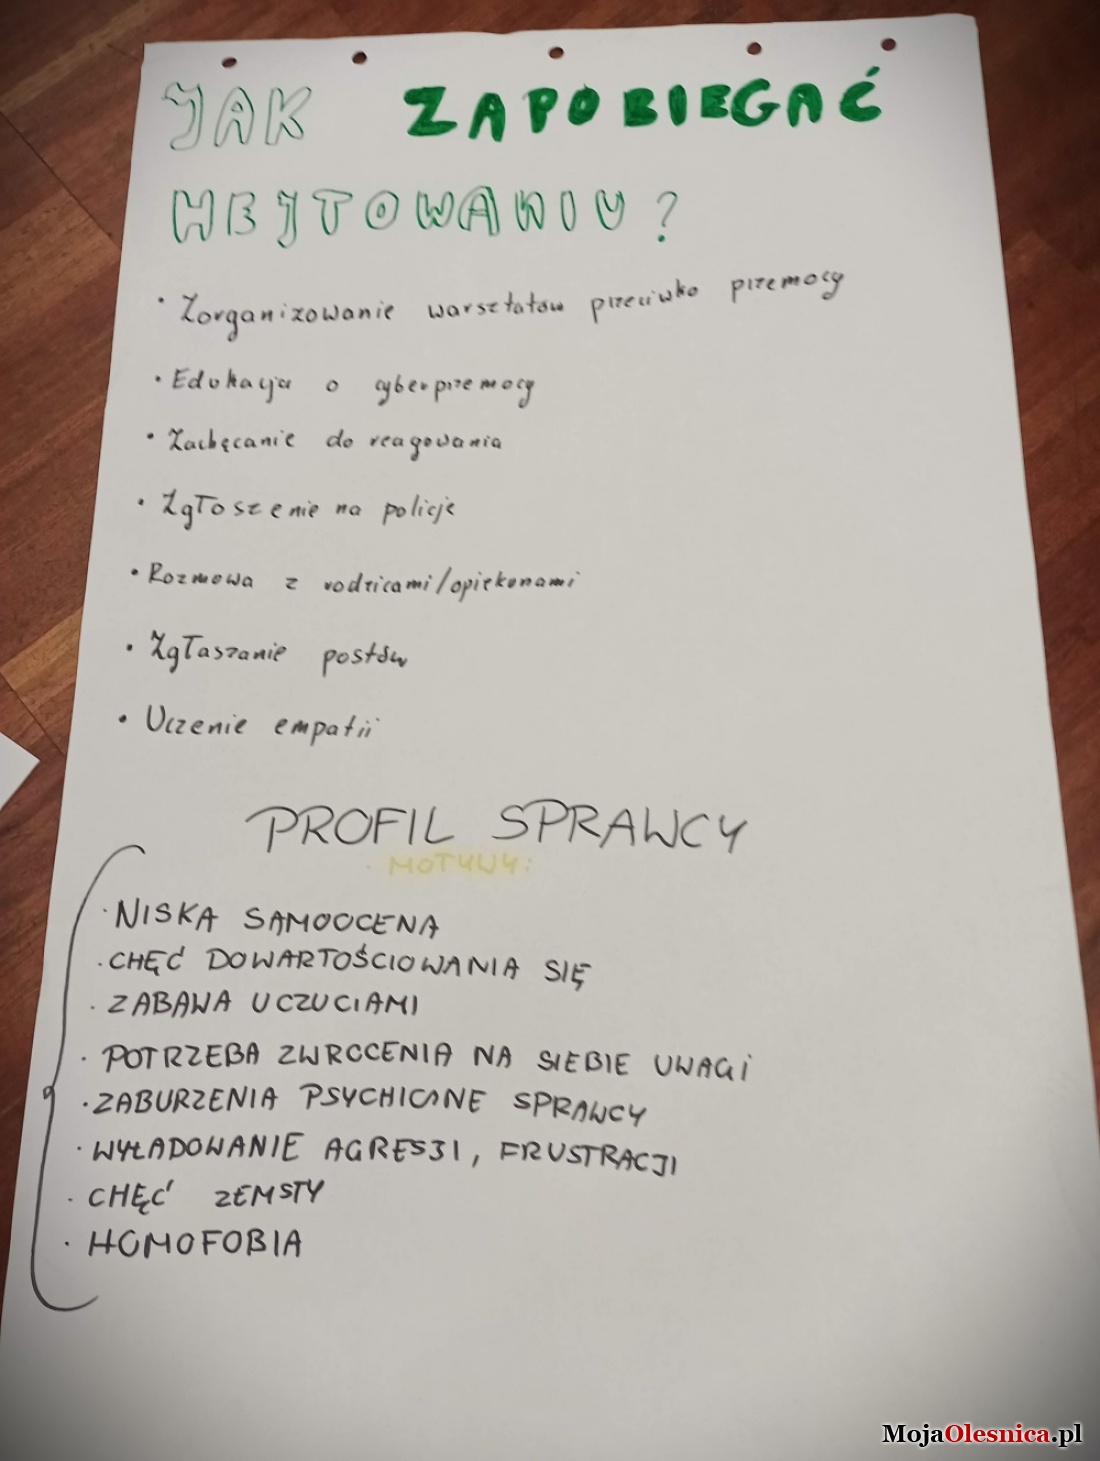 JAK ZAPOBIEGAĆ
HEJTOWANIU?
• Zorganizowanie warsztatów przeciwko przemocy
• Edukacja o cyberprzemocy
• Zachęcanie do reagowania
• Zgłoszenie na policje
• Rozmowa z rodzicami/opiekunami
• Zgłaszanie postów
• Uczenie empatii
PROFIL SPRAWCY
· MOTYWY:
· NISKA SAMOOCENA
· CHĘĆ DOWARTOŚCIOWANIA SIĘ
· ZABAWA UCZUCIAMI
· POTRZEBA ZWROCENIA NA SIEBIE UWAGI
· ZABURZENIA PSYCHICZNE SPRAWCY
· WYŁADOWANIE AGRESJI, FRUSTRACJI
· CHĘĆ ZEMSTY
· HOMOFOBIA
MojaOlesnica.pl